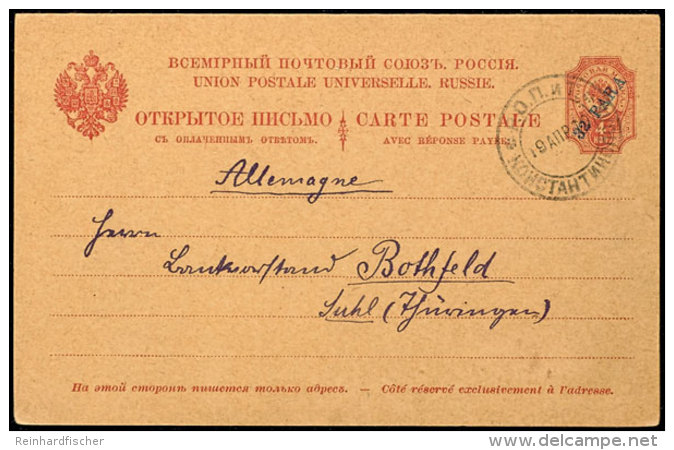 ВСЕМІРНЫЙ ПОЧТОВЫЙ СОЮЗЪ. РОССІЯ.
UNION POSTALE UNIVERSELLE. RUSSIE.
ОТКРЫТОЕ ПИСЬМО CARTE POSTALE
СЪ ОПЛАЧЕННЫМЪ ОТВѢТОМЪ. AVEC RÉPONSE PAYÉE.
32 PARA
19 АПР
КОНСТАНТИН
Allemagne
Herrn
Bankvorstand Bothfeld
Suhl (Thüringen)
На этой сторонѣ пишется только адресъ. — Côté réservé exclusivement à l'adresse.
Reinhardfischer
delcampe.net